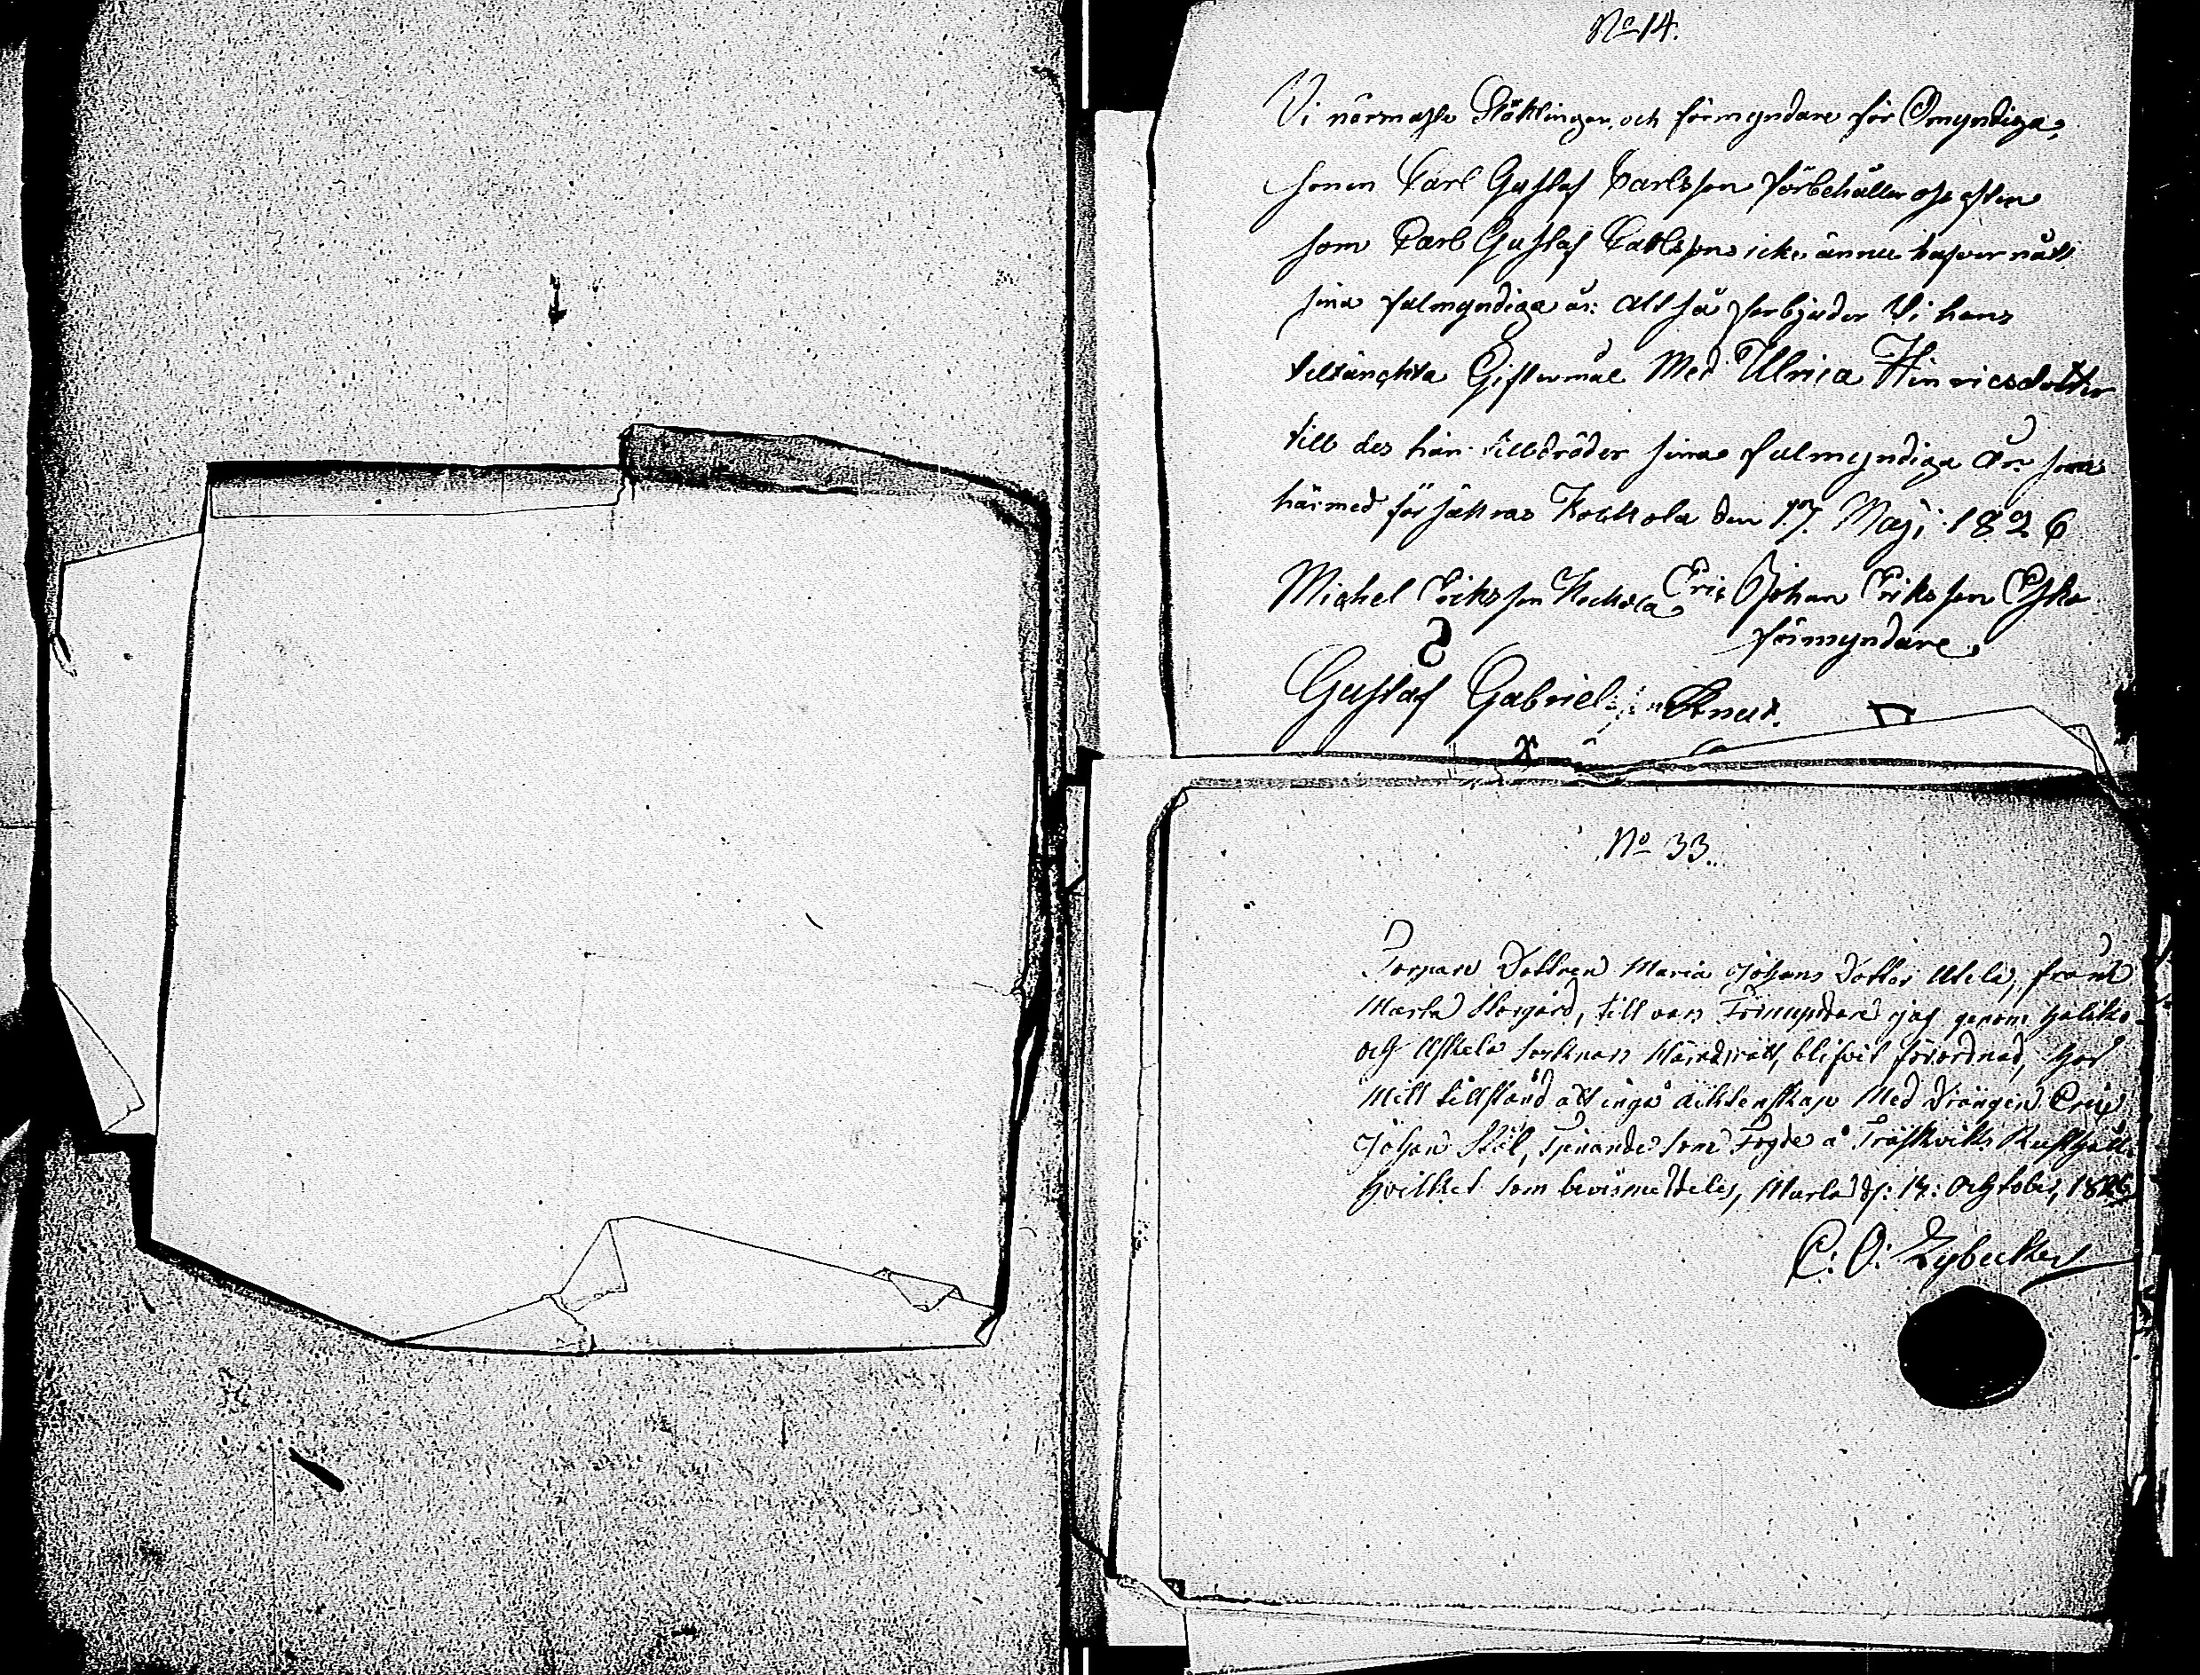 No 14.
Vi närmaste Släktingar, och förmyndare för Omyndiga,
sonen Carl Gustaf Carlsson förbehåller oss efter
som Carl Gustaf Carlsson icke ännu hafver nått
sina fulmyndiga år: altså förbjuder Vi hans
tiltänchta Giftermål Med Ulrica Hinricsdotter
till des han tilldräder sina fulmyndiga År som
härmed försäkras Kockola den 17. Maji 1826
Michel Eriksson Kockola Eric Johan Eriksson
förmyndare
Gustaf Gabriel
No 33.
Torpare Dottren Maria Johans Dotter från
Marla Storgård, till vars Förmyndare jag genom Haliko
och Uskela Socknars Häradsrätt, blifvit förordnad, har
Mitt tillstånd att ingå äcktenskap Med Drängen Eric
Johan Stål, Tjenande som Fogde å Träskviks Rusthåll
Hvilket som bevis meddeles, Marla d: October, 1826
C: O: Zybecker